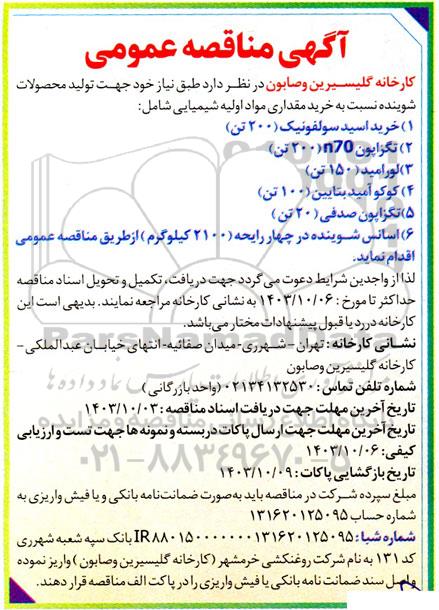 آگهی مناقصه عمومی
کارخانه گلیسیرین وصابون در نظر دارد طبق نیاز خود جهت تولید محصولات
شوینده نسبت به خرید مقداری مواد اولیه شیمیایی شامل:
۱) خرید اسید سولفونیک (۲۰۰ تن)
۲) تگزاپون n70 (۲۰۰ تن)
۳) لورامید (۱۵۰ تن)
۴) کوکو آمید بتایین (۱۰۰ تن)
۵) تگزاپون صدفی (۲۰ تن)
۶) اسانس شوینده در چهار رایحه (۲۱۰۰ کیلوگرم) ازطریق مناقصه عمومی
اقدام نماید.
لذا از واجدین شرایط دعوت می گردد جهت دریافت، تکمیل و تحویل اسناد مناقصه
حداکثر تا مورخ : ۱۴۰۳/۱۰/۰۶ به نشانی کارخانه مراجعه نمایند. بدیهی است این
کارخانه دررد یا قبول پیشنهادات مختار می باشد.
نشانی کارخانه : تهران – شهرری – میدان صفائیه – انتهای خیابان عبدالملکی –
کارخانه گلیسیرین وصابون
شماره تلفن تماس : ۰۲۱۳۴۱۳۲۵۳۰ (واحد بازرگانی)
تاریخ آخرین مهلت جهت دریافت اسناد مناقصه : ۱۴۰۳/۱۰/۰۳
تاریخ آخرین مهلت جهت ارسال پاکات دربسته و نمونه ها جهت تست و ارزیابی
کیفی : ۱۴۰۳/۱۰/۰۶
تاریخ بازگشایی پاکات : ۱۴۰۳/۱۰/۰۹
مبلغ سپرده شرکت در مناقصه باید به صورت ضمانت نامه بانکی و یا فیش واریزی به
شماره حساب ۱۳۱۶۲۰۱۲۵۰۹۵
شماره شبا : IR ۸۸۰۱۵۰۰۰۰۰۰۰۱۳۱۶۲۰۱۲۵۰۹۵ بانک سپه شعبه شهرری
کد ۱۳۱ به نام شرکت روغنکشی خرمشهر (کارخانه گلیسیرین وصابون) واریز نموده
واصل سند ضمانت نامه بانکی یا فیش واریزی را در پاکت الف مناقصه قرار دهند.
ParsNamadData
۰۲۱-۸۸۳۴۹۶۷۰-۵